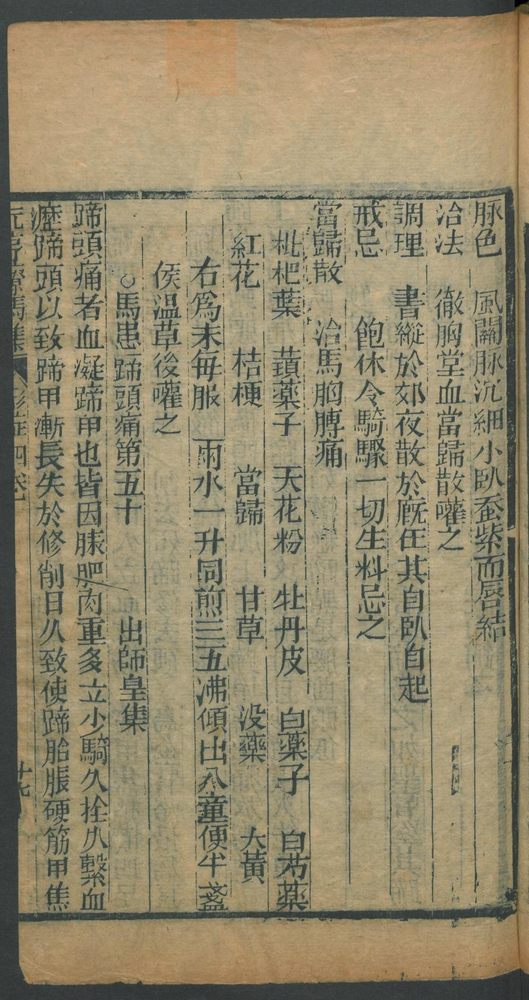 脉色　風關脉沉細小臥蚕紫而唇結
治法　徹胸堂血當歸散嚾之
調理　書縱於郊夜散於厩任其自臥自起
戒忌　飽休令騎驟一切生料忌之
當歸散　治馬胸膊痛
枇杷葉　蘋藥子　天花粉　牡丹皮　白藥子　白芍藥
紅花　桔梗　當歸　甘草　没藥　大黃
右爲末每服　兩水一升同煎三五沸傾出入童便半盞
侯温草後嚾之
○馬患蹄頭痛第五十　出師皇集
蹄頭痛者血凝蹄甲也皆因膘肥肉重多立少騎久拴久繫血
瘀蹄頭以致蹄甲漸長失於修削日久致使蹄胎脹硬筋甲焦
元亨療馬集　四卷　十七